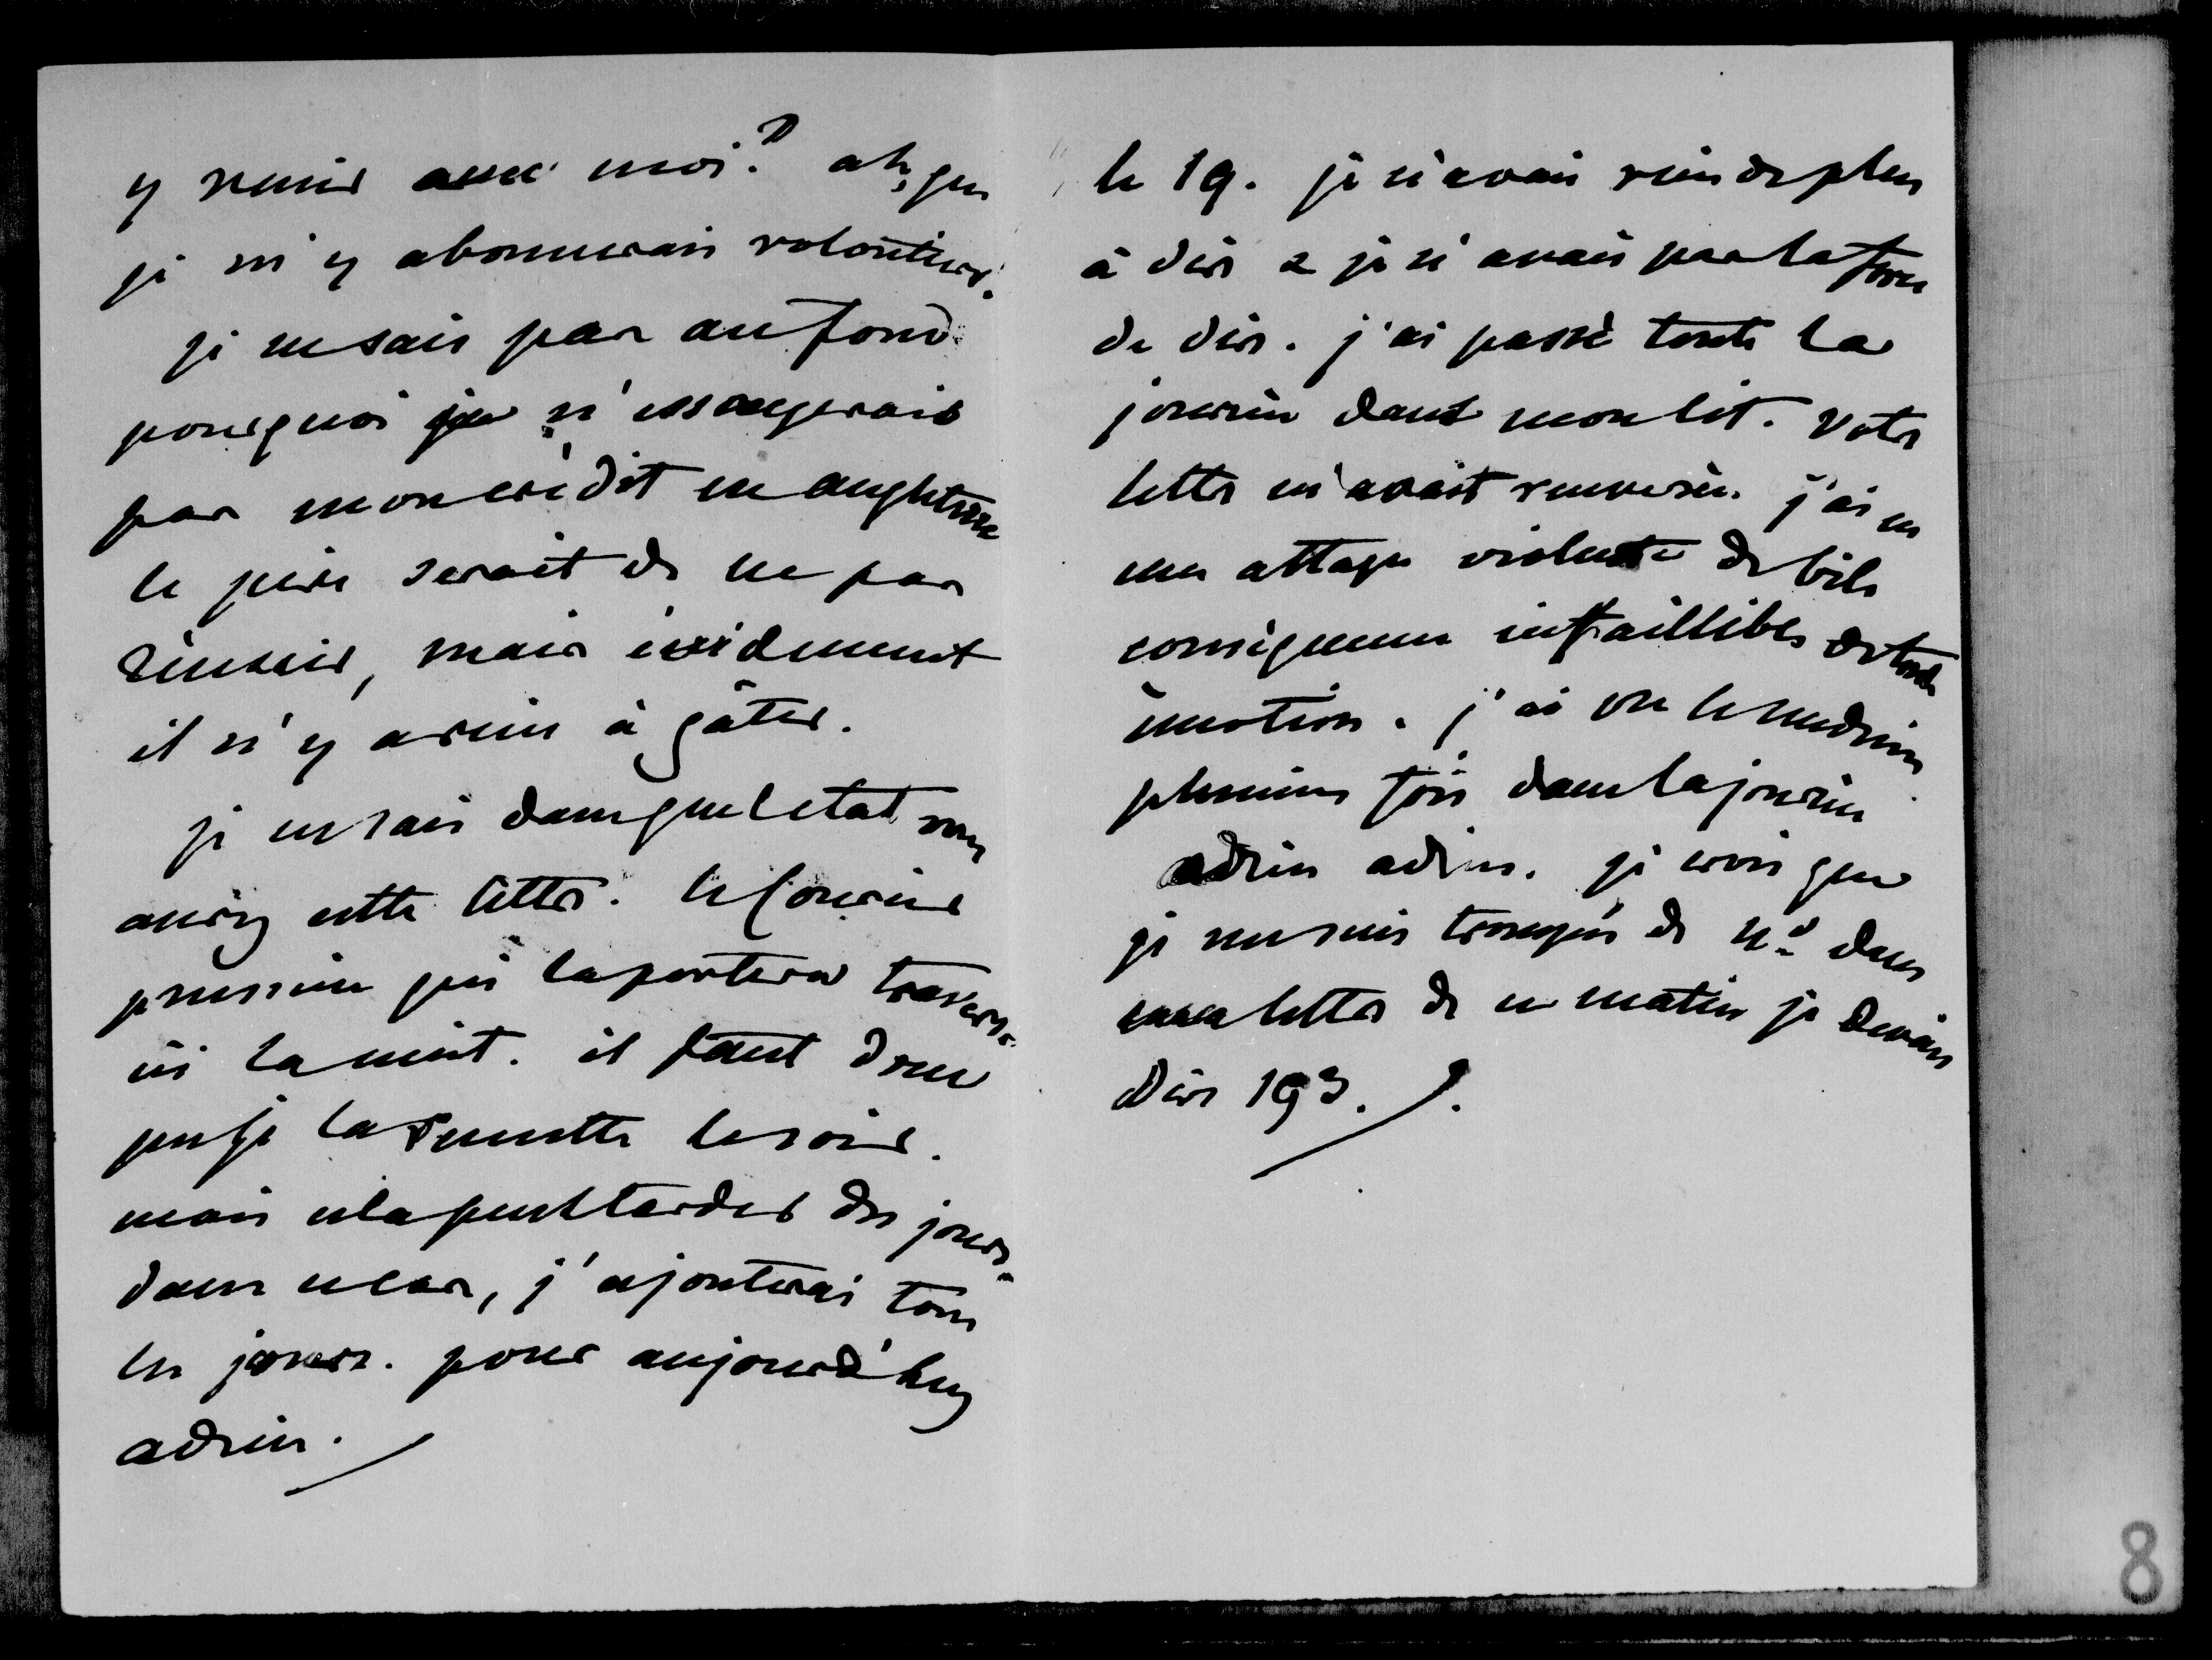 y venir avec moi? ah, que
je m'y abonnerais volontiers.
je ne sais pas au fond
pourquoi je n'essayerais
pas mon crédit en angleterre
le pire serait de ne pas
réussir, mais évidemment
il n'y a rien à gâter.
je ne sais dans quel etat vous
aurez cette lettre. le courier
prussien qui la portera traverse
ici la nuit. il faut donc
que je la remette le soir.
mais cela peut tarder des jours.
dans ce cas, j'ajouterai tous
les jours. pour aujourd'huy
adieu.
le 19. je n'avais rien de plus
à dire & je n'avais pas la force
de dire. j'ai passé toute la
journée dans mon lit. votre
lettre m'avait renversée. j'ai eu
une attaque violente de bile
conséquence infaillible de toute
émotion. j'ai vu le medecin
plusieurs fois dans la journée
adieu adieu. je crois que
je me suis trompée de n° dans
ma lettre de ce matin je devais
dire 193.
8